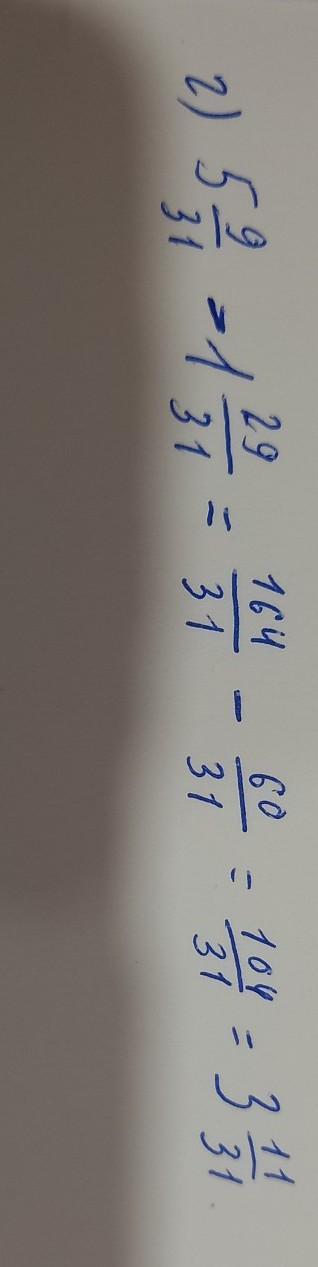 г) 5 9/31 - 1 29/31 = 164/31 - 60/31 = 104/31 = 3 11/31